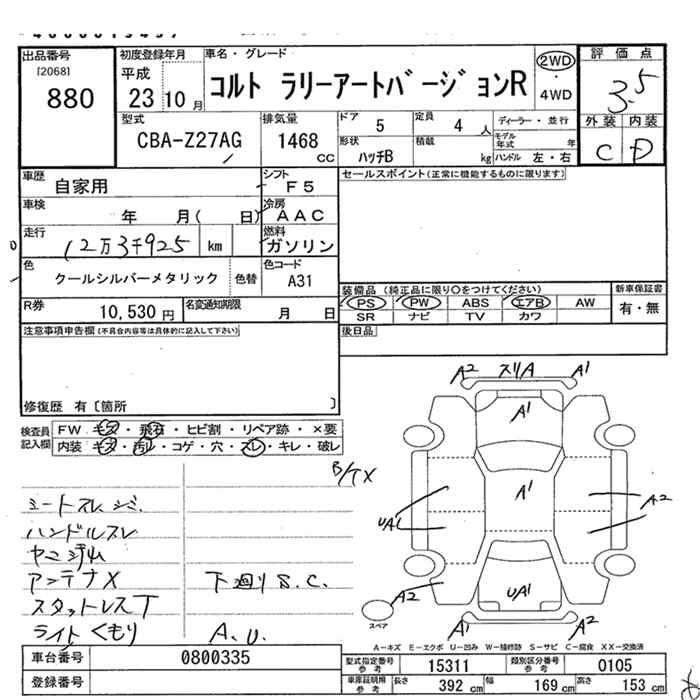 出品番号
[2068]
880
初度登録年月
平成
23 10月
車名・グレード
コルト ラリーアートバージョンR
2WD
・
4WD
評価点
3.5
外装 内装
C D
型式
CBA-Z27AG
排気量
1468
CC
ドア
5
定員
4 人
ディーラー・並行
モデル年式 年
形状
ハッチB
積載
kg
ハンドル 左・右
車歴
自家用
シフト
F5
セールスポイント(正常に機能するものに限ります)
車検
年 月( 日)
冷房
AAC
走行
12万3千925 km
燃料
ガソリン
色
クールシルバーメタリック
色替
色コード
A31
R券
10,530 円
名変通知期限
月 日
装備品 (純正品に限り○をつけてください)
PS PW ABS エアB AW
SR ナビ TV カワ
新車保証書
有・無
注意事項申告欄(不具合内容等は具体的に記入して下さい)
後日品
修復歴 有〔箇所 〕
検査員記入欄
FW キズ・飛石・ヒビ割・リペア跡・×要
内装 キズ・汚レ・コゲ・穴・スレ・キレ・破レ
シートスレ シミ
ハンドルスレ
ヤニ汚レ
アンテナX
スタットレスT
ライトくもり
下廻りS.C.
A.U.
A2 スリA A1
A1
A1
UA1
A2
A2
UA1
A1 A2
スペア
A-キズ E-エクボ U-凹み W-補修跡 S-サビ C-腐食 XX-交換済
車台番号
0800335
登録番号
型式指定番号 参考
15311
類別区分番号 参考
0105
車庫証明用 参考
長さ 392 cm
幅 169 cm
高さ 153 cm